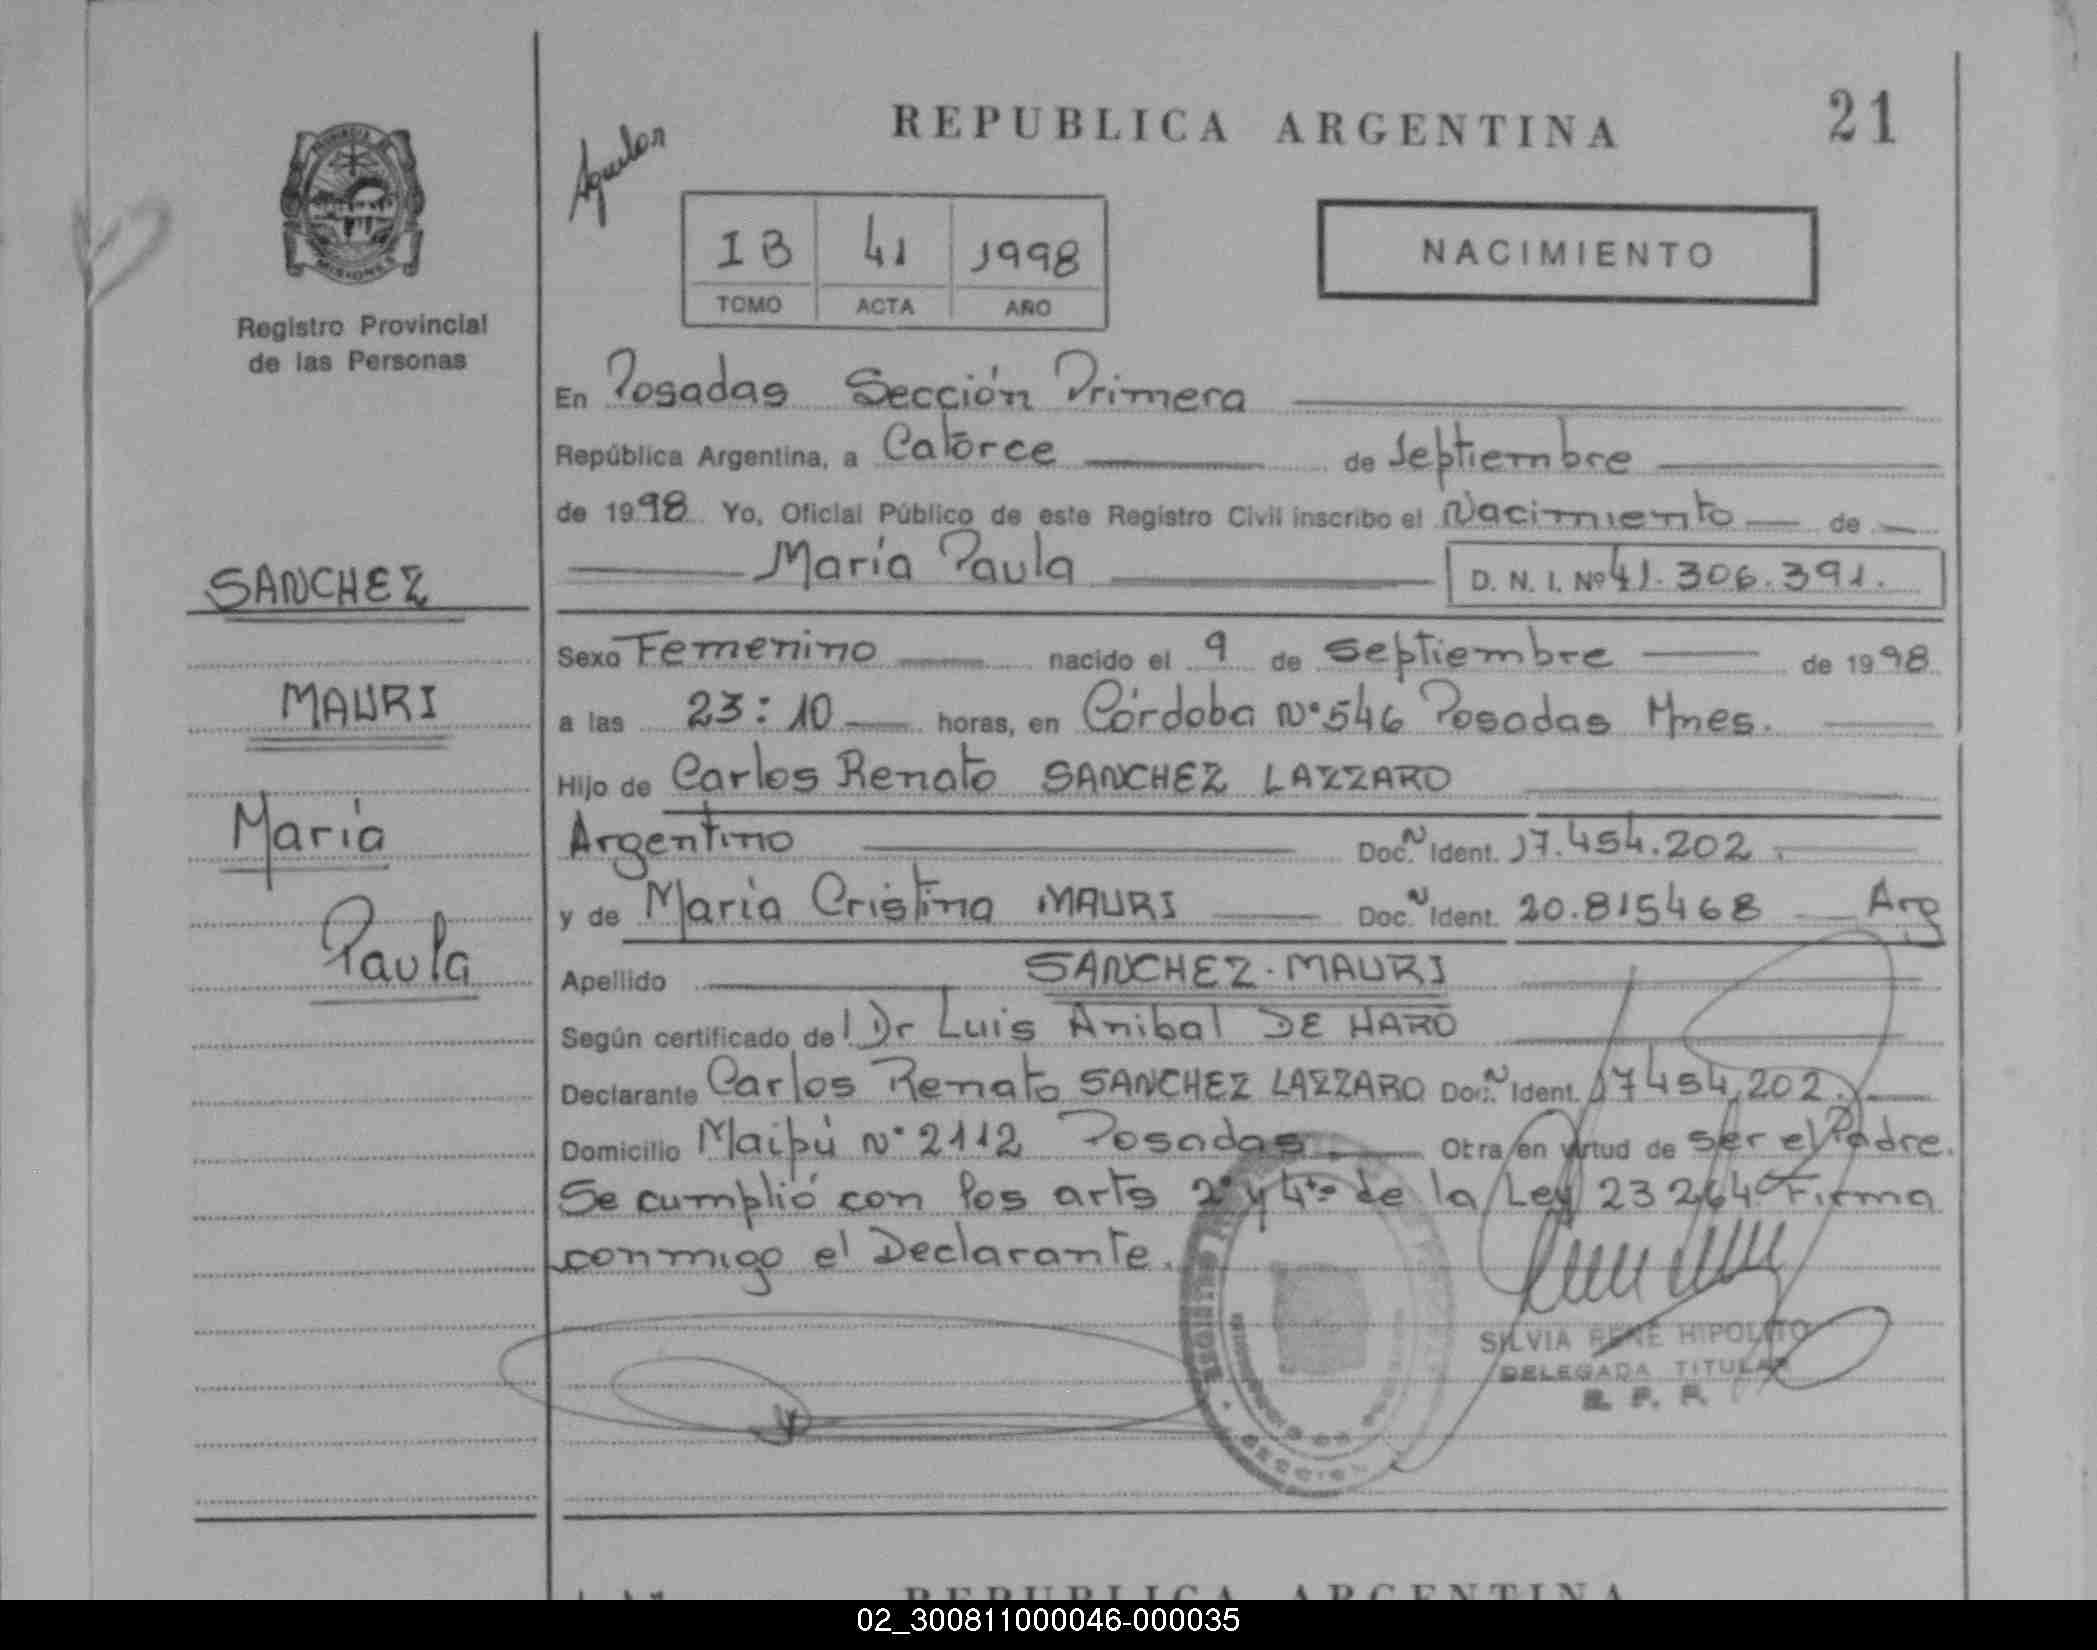 REPUBLICA ARGENTINA
21
PROVINCIA
MISIONES
Registro Provincial
de las Personas
IB 41 1998
TOMO ACTA AÑO
NACIMIENTO
En Posadas Sección Primera
República Argentina, a Catorce de Septiembre
de 1998 Yo, Oficial Público de este Registro Civil inscribo el Nacimiento de
María Paula D. N. I. Nº 41.306.391.
SANCHEZ
MAURI
María
Paula
Sexo Femenino nacido el 9 de Septiembre de 1998
a las 23:10 horas, en Córdoba Nº 546 Posadas Mnes.
Hijo de Carlos Renato SANCHEZ LAZZARO
Argentino Doc. N Ident. 17.454.202.
y de María Cristina MAURI Doc. N Ident. 20.815468 Arg
Apellido SANCHEZ-MAURI
Según certificado del Dr Luis Anibal DE HARO
Declarante Carlos Renato SANCHEZ LAZZARO Doc. N Ident. 17454.202.
Domicilio Maipú Nº 2112 Posadas Otra en virtud de ser el Padre.
Se cumplió con los arts 2º y 4to de la Ley 23264 Firma
conmigo el Declarante.
SILVIA RENE HIPOLITO
DELEGADA TITULAR
R. P. P.
REPUBLICA ARGENTINA
02_300811000046-000035